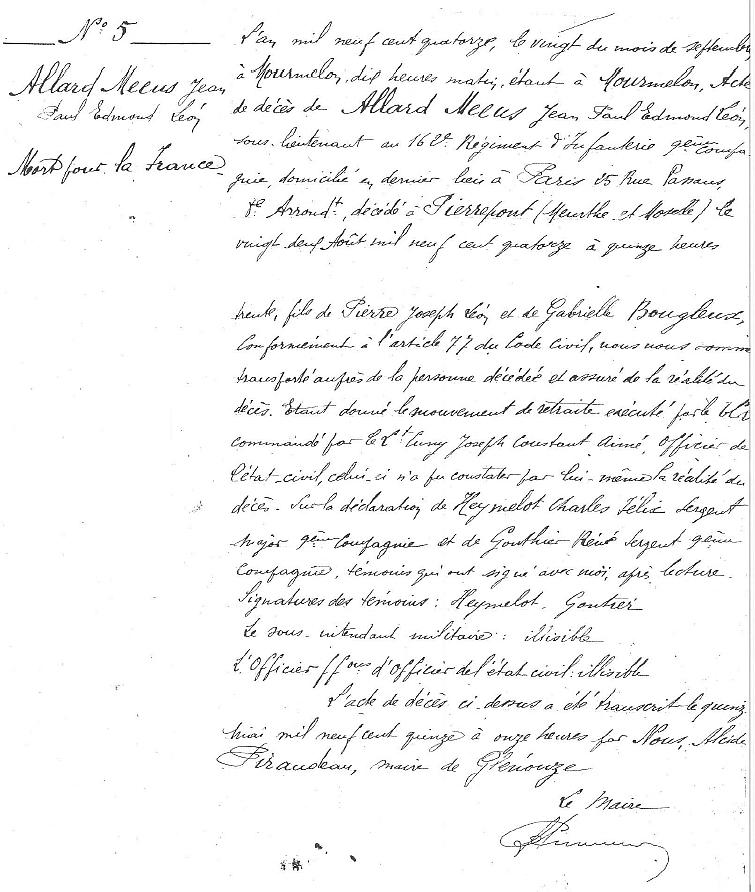 N° 5
Allard Meeus Jean
Paul Edmond Léon
Mort pour la France
L'an mil neuf cent quatorze, le vingt du mois de septembre
à Mourmelon, dix heures matin, étant à Mourmelon, Acte
de décès de Allard Meeus Jean Paul Edmond Léon,
sous-lieutenant au 162e Régiment d'Infanterie 9ème Compa
gnie, domicilié en dernier lieu à Paris 25 Rue
8e Arrondt, décédé à Pierrepont (Meurthe et Moselle) le
vingt deux Août mil neuf cent quatorze à quinze heures
trente, fils de Pierre Joseph Léon et de Gabrielle Bougleux,
Conformément à l'article 77 du Code Civil, nous nous somm
transporté auprès de la personne décédée et assuré de la réalité du
décès. Etant donné le mouvement de retraite exécuté par le
commandé par le Lt Cuny Joseph Constant Aimé, Officier de
l'état-civil, celui-ci n'a pu constater par lui-même la réalité du
décès. Sur la déclaration de Heymelot Charles Félix Sergent
major 9ème Compagnie et de Gonthier René Sergent 9ème
Compagnie, témoins qui ont signé avec moi, après lecture.
Signatures des témoins: Heymelot. Gontier
Le sous-intendant militaire: illisible
L'Officier ffons d'Officier de l'état civil: illisible
L'acte de décès ci-dessus a été transcrit le quinz
mai mil neuf cent quinze à onze heures par Nous, Alcide
Piraudeau, maire de Glénouze
Le Maire